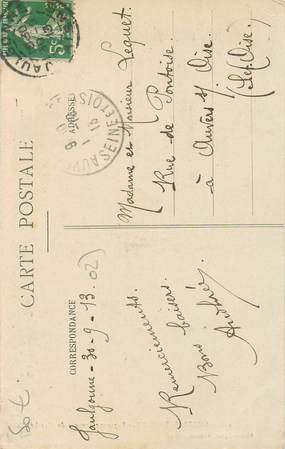 CARTE POSTALE
CORRESPONDANCE
ADRESSE
Jaulgonne - 30-9-13.
02
Remerciements.
Bons baisers.
Andrée
Madame et Monsieur Lequet
Rue de Pontoise
à Auvers s/ Oise
(S. et Oise).
SEINE ET OISE
5c